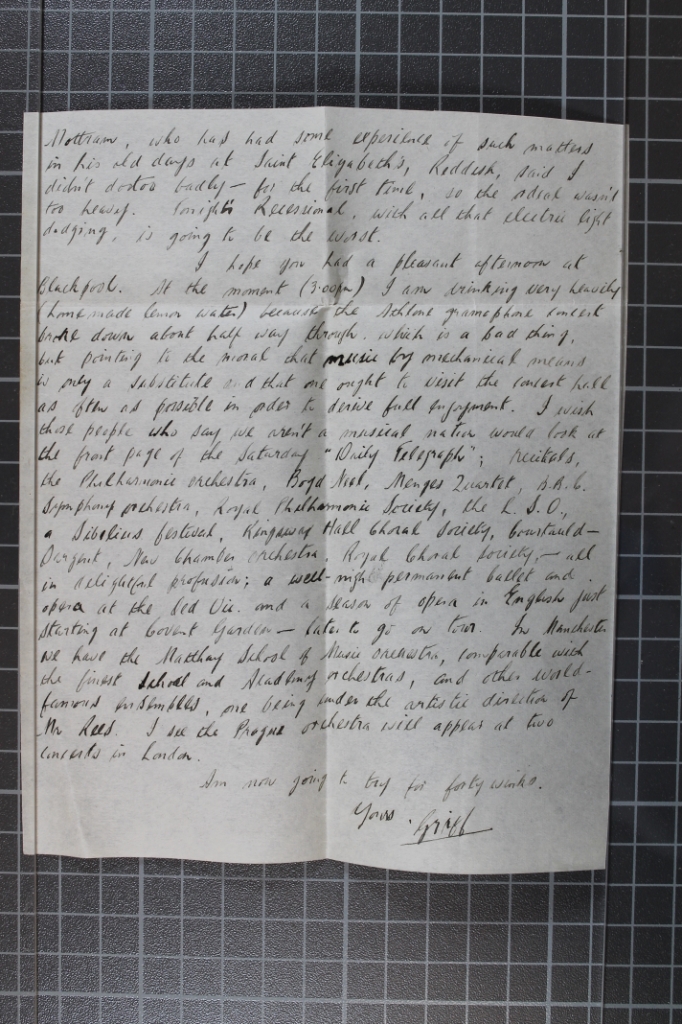 Mottram, who has had some experience of such matters
in his old days at Saint Elizabeth's, Reddish, said I
didn't do too badly — for the first time, so the ordeal wasn't
too heavy. Tonight's Recessional, with all that electric light
dodging, is going to be the worst.
I hope you had a pleasant afternoon at
Blackpool. At the moment (3.00pm) I am drinking very heavily
(home made lemon water) because the Athlone gramophone concert
broke down about half way through, which is a bad thing,
but pointing to the moral that music by mechanical means
is only a substitute and that one ought to visit the concert hall
as often as possible in order to derive full enjoyment. I wish
those people who say we aren't a musical nation would look at
the front page of the Saturday "Daily Telegraph"; recitals,
the Philharmonic orchestra, Boyd Neel, Menges Quartet, B.B.C.
Symphony orchestra, Royal Philharmonic Society, the L.S.O.,
a Sibelius festival, Kingsway Hall Choral Society, Courtauld-
Sargent, New Chamber orchestra, Royal Choral Society, — all
in delightful profusion; a well-nigh permanent ballet and
opera at the Old Vic. and a season of opera in English just
starting at Covent Garden — later to go on tour. In Manchester
we have the Matthay School of Music orchestra, comparable with
the finest school and Academy orchestras, and other world-
famous ensembles, one being under the artistic direction of
Mr Rees. I see the Prague orchestra will appear at two
concerts in London.
Am now going to try for forty winks.
Yours.
Griff